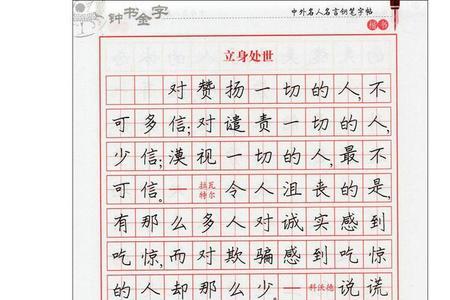 钟书金字
中外名人名言钢笔字帖
楷书
立身处世
对赞扬一切的人,不
可多信;对谴责一切的人,
少信;漠视一切的人,最不
可信。——拉瓦特尔 令人沮丧的是,
有那么多人对诚实感到
吃惊,而对欺骗感到吃惊
的人却那么少。——科沃德 说谎